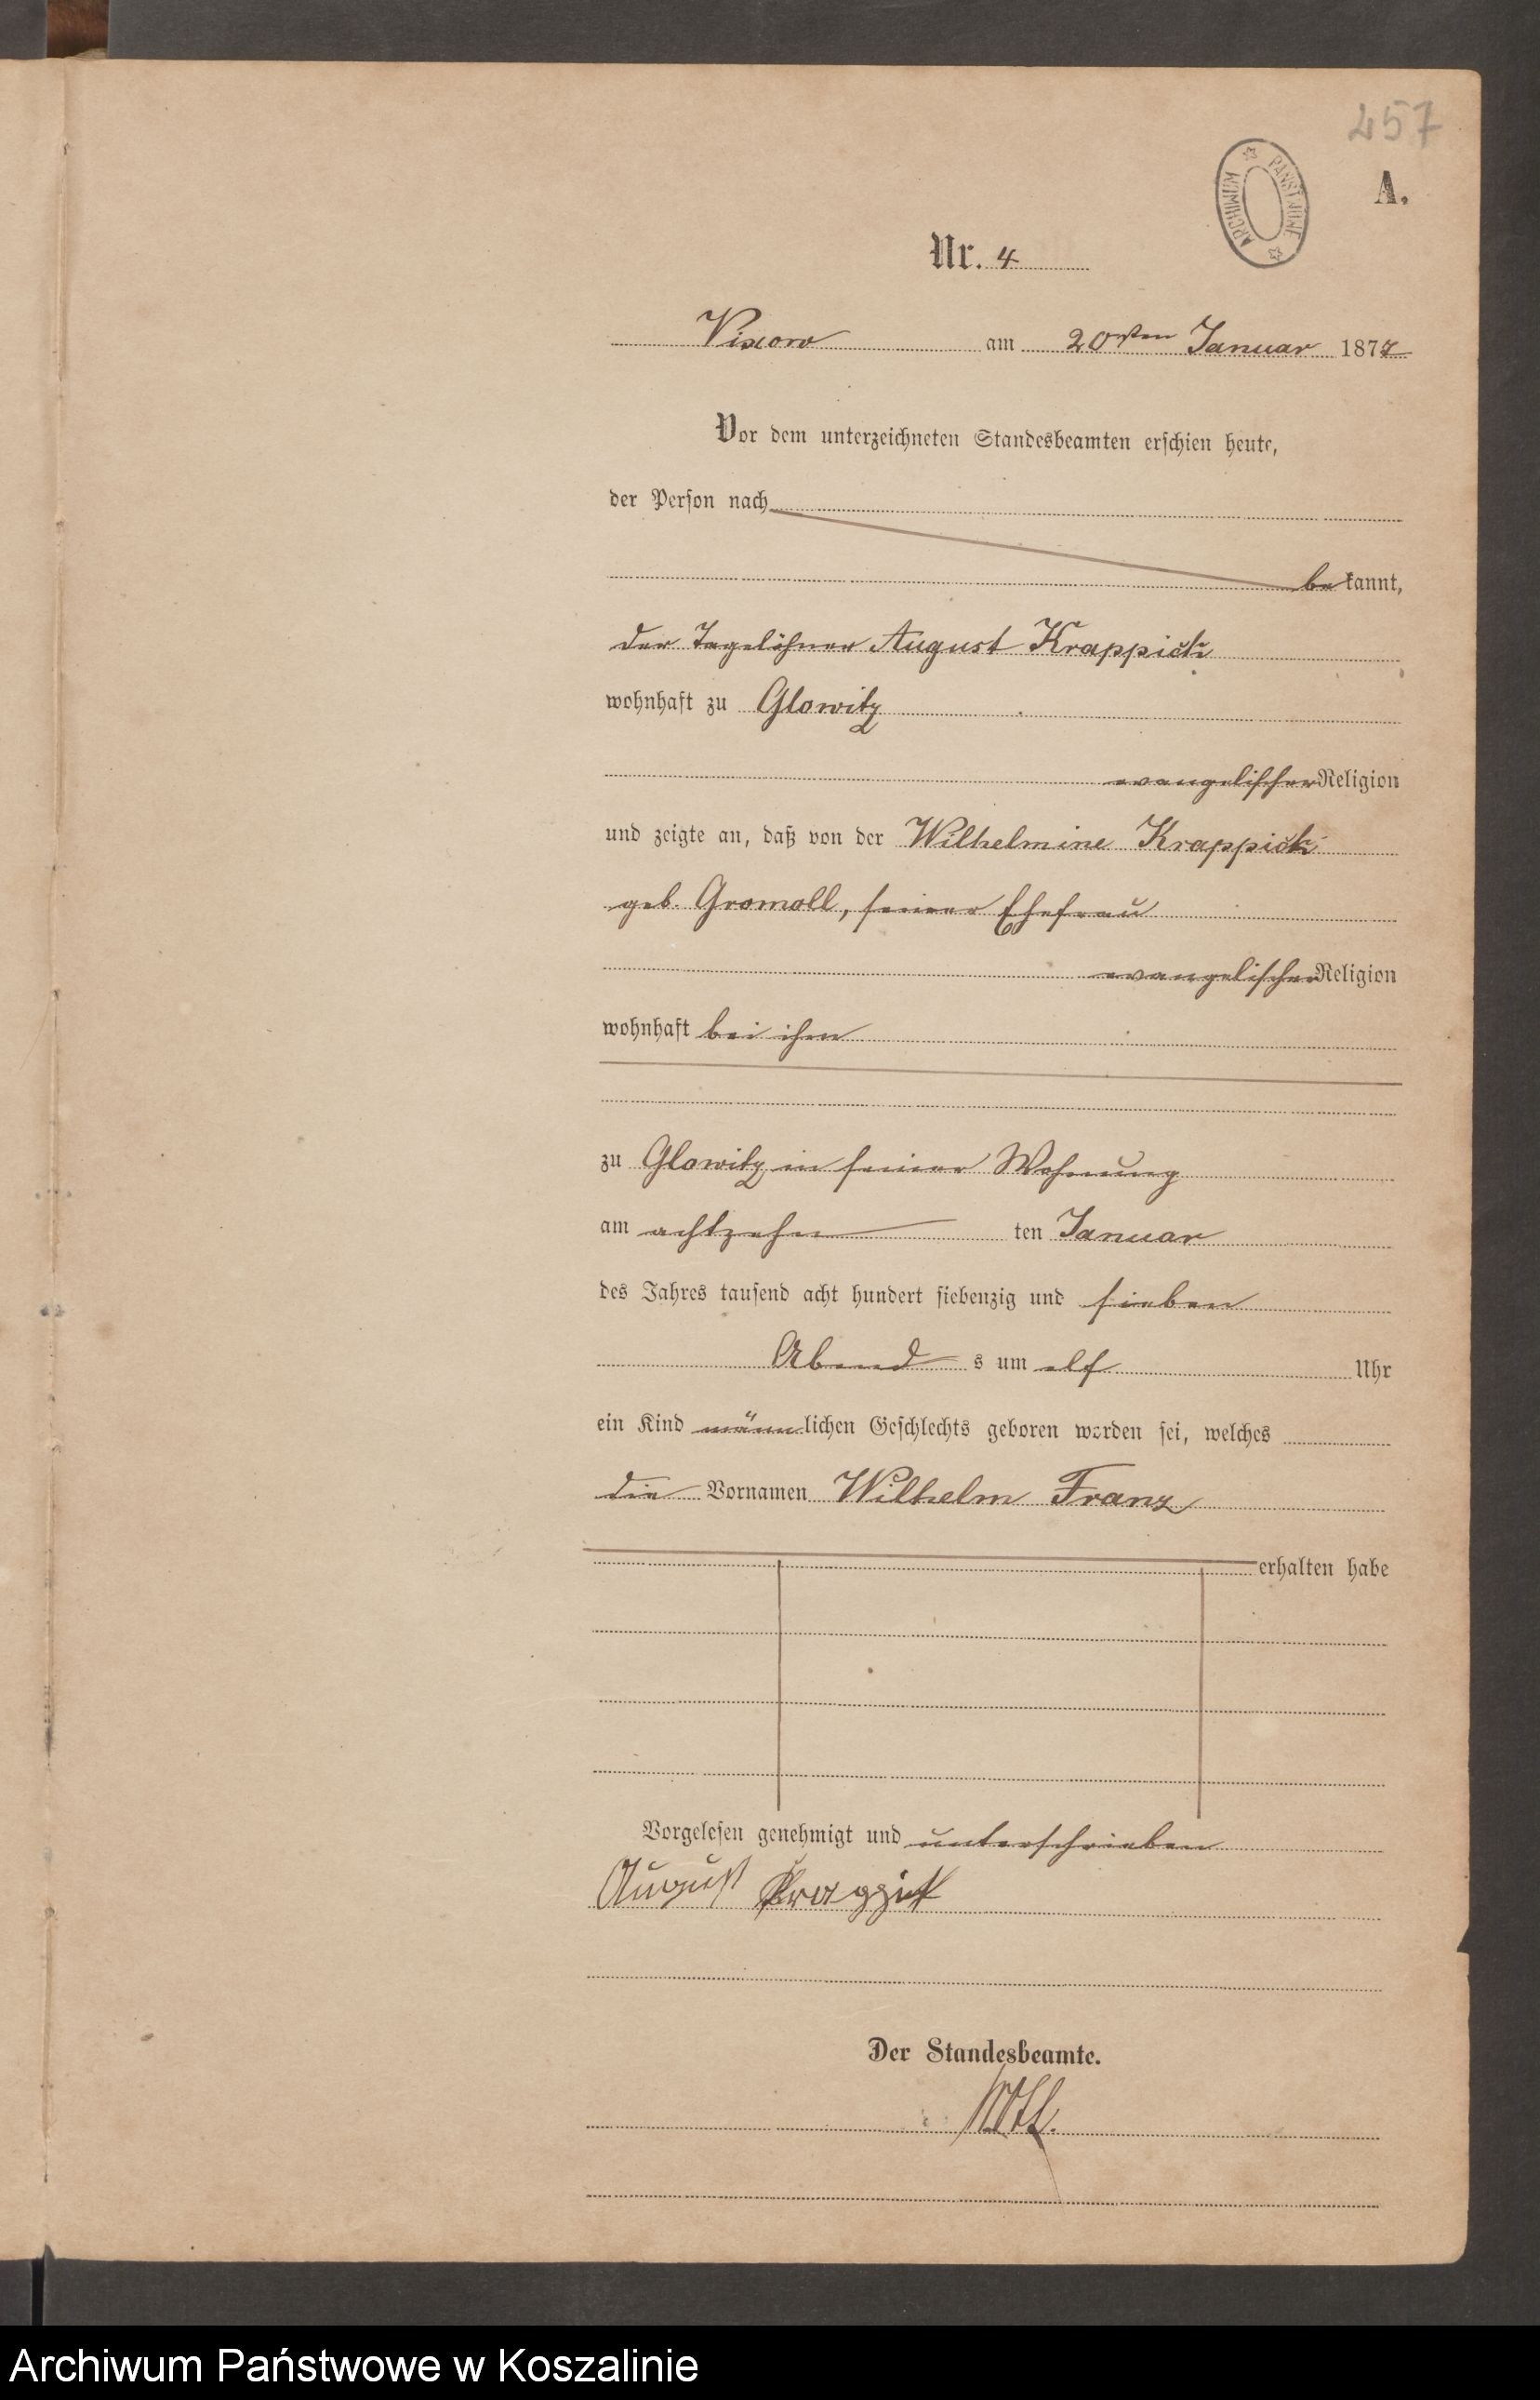 457
A.
ARCHIWUM PAŃSTWOWE
Nr. 4
Vixow am 20sten Januar 1877
Vor dem unterzeichneten Standesbeamten erschien heute,
der Person nach
bekannt,
der Tagelöhner August Krappick
wohnhaft zu Glowitz
evangelischer Religion
und zeigte an, daß von der Wilhelmine Krappick
geb. Gromoll, seiner Ehefrau
evangelischer Religion
wohnhaft bei ihm
zu Glowitz in seiner Wohnung
am achtzehn ten Januar
des Jahres tausend acht hundert siebenzig und sieben
Abend s um elf Uhr
ein Kind männlichen Geschlechts geboren worden sei, welches
die Vornamen Wilhelm Franz
erhalten habe
Vorgelesen genehmigt und unterschrieben
August
Der Standesbeamte.
Archiwum Państwowe w Koszalinie